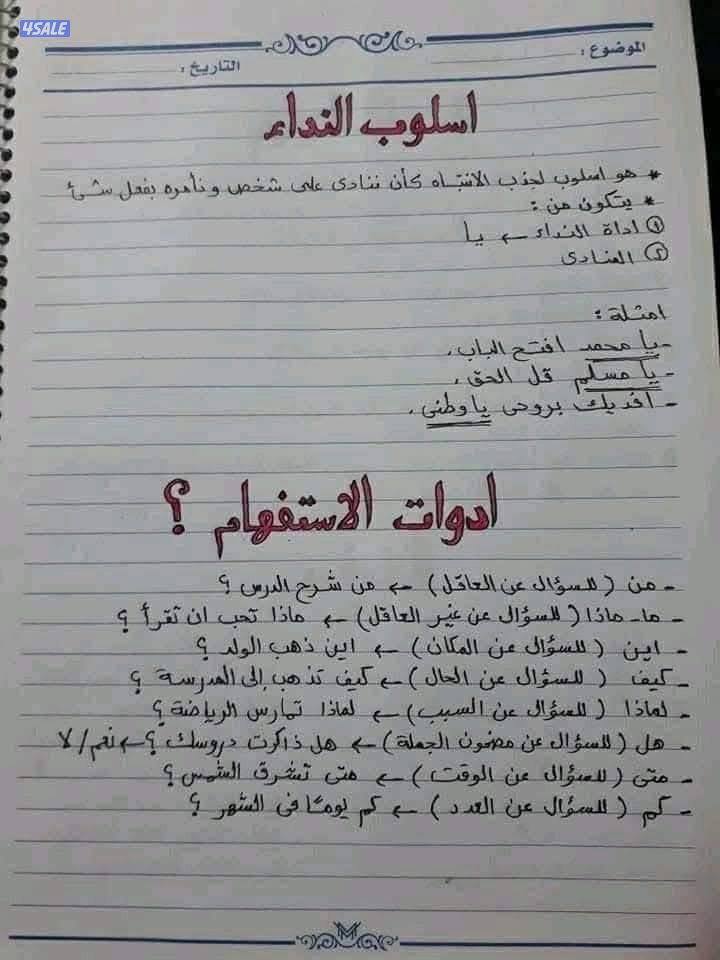 4SALE
الموضوع :
التاريخ :
اسلوب النداء
* هو اسلوب لجذب الانتباه كأن ننادى على شخص ونأمره بفعل شئ
* يتكون من :
① اداة النداء ← يا
② المنادى
امثلة :
- يا محمد افتح الباب .
- يا مسلم قل الحق .
- افديك بروحى يا وطنى .
ادوات الاستفهام ؟
- من ( للسؤال عن العاقل ) ← من شرح الدرس ؟
- ما - ماذا ( للسؤال عن غير العاقل ) ← ماذا تحب ان تقرأ ؟
- اين ( للسؤال عن المكان ) ← اين ذهب الولد ؟
- كيف ( للسؤال عن الحال ) ← كيف تذهب إلى المدرسة ؟
- لماذا ( للسؤال عن السبب ) ← لماذا تمارس الرياضة ؟
- هل ( للسؤال عن مضمون الجملة ) ← هل ذاكرت دروسك ؟ ← نعم / لا
- متى ( للسؤال عن الوقت ) ← متى تشرق الشمس ؟
- كم ( للسؤال عن العدد ) ← كم يومًا فى الشهر ؟